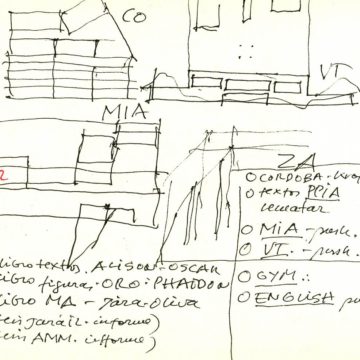 CO
VT
MIA
2
ZA
O CORDOBA-
O textos PPIA
rematar
O MIA -
O VT. -
O GYM.:
O ENGLISH
libro textos, ALISON-OSCAR
libro figuras, ORO: PHAIDON
libro MA - Jara-oliva
informe)
AMM. informe)